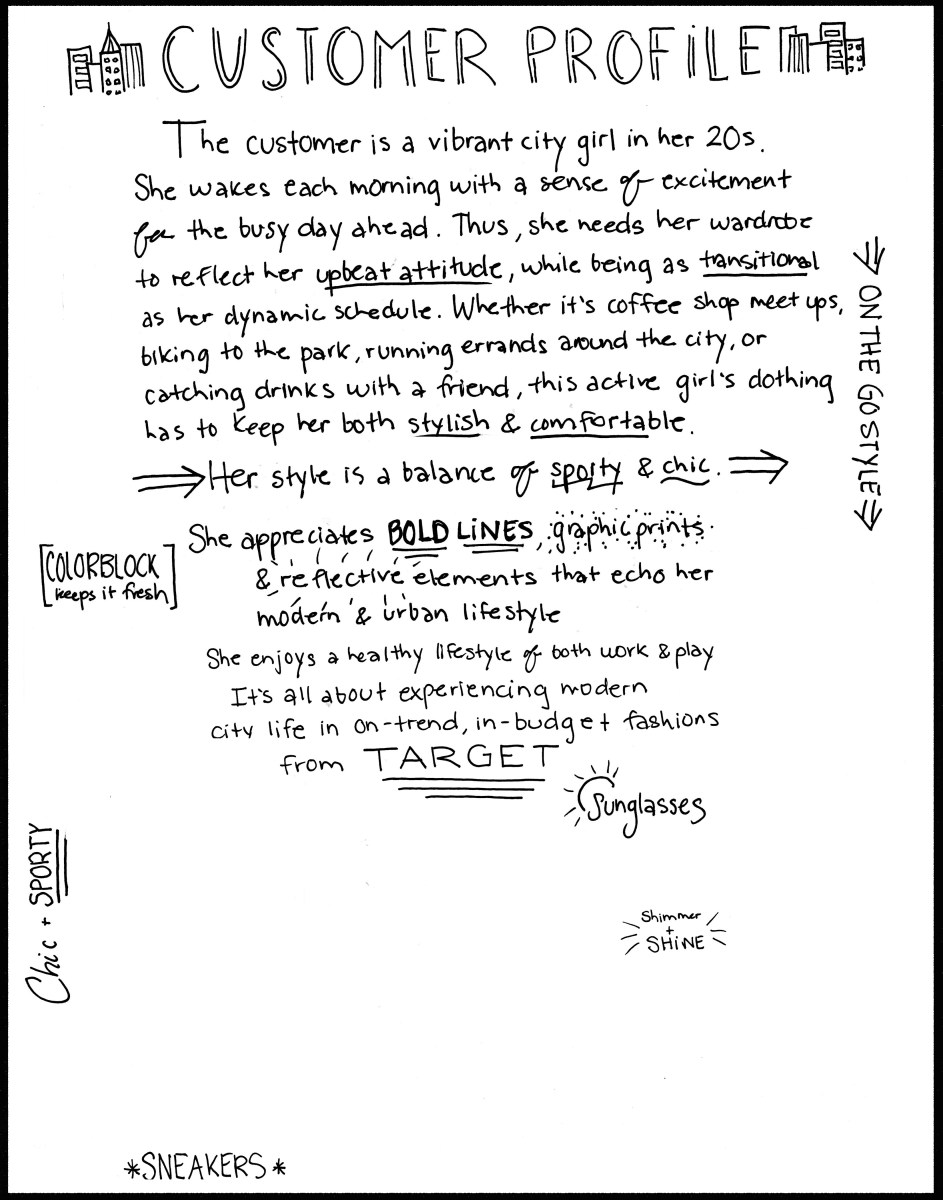 CUSTOMER PROFILE
The customer is a vibrant city girl in her 20s.
She wakes each morning with a sense of excitement
for the busy day ahead. Thus, she needs her wardrobe
to reflect her upbeat attitude, while being as transitional
as her dynamic schedule. Whether it's coffee shop meet ups,
biking to the park, running errands around the city, or
catching drinks with a friend, this active girl's clothing
has to keep her both stylish & comfortable.
⇒ Her style is a balance of sporty & chic. ⇒
⇒ ON THE GO STYLE ⇒
She appreciates BOLD LiNES, graphic prints
& reflective elements that echo her
modern & urban lifestyle
[COLORBLOCK
keeps it fresh]
She enjoys a healthy lifestyle of both work & play
It's all about experiencing modern
city life in on-trend, in-budget fashions
from TARGET
Sunglasses
Chic + SPORTY
Shimmer
+
SHiNE
*SNEAKERS*